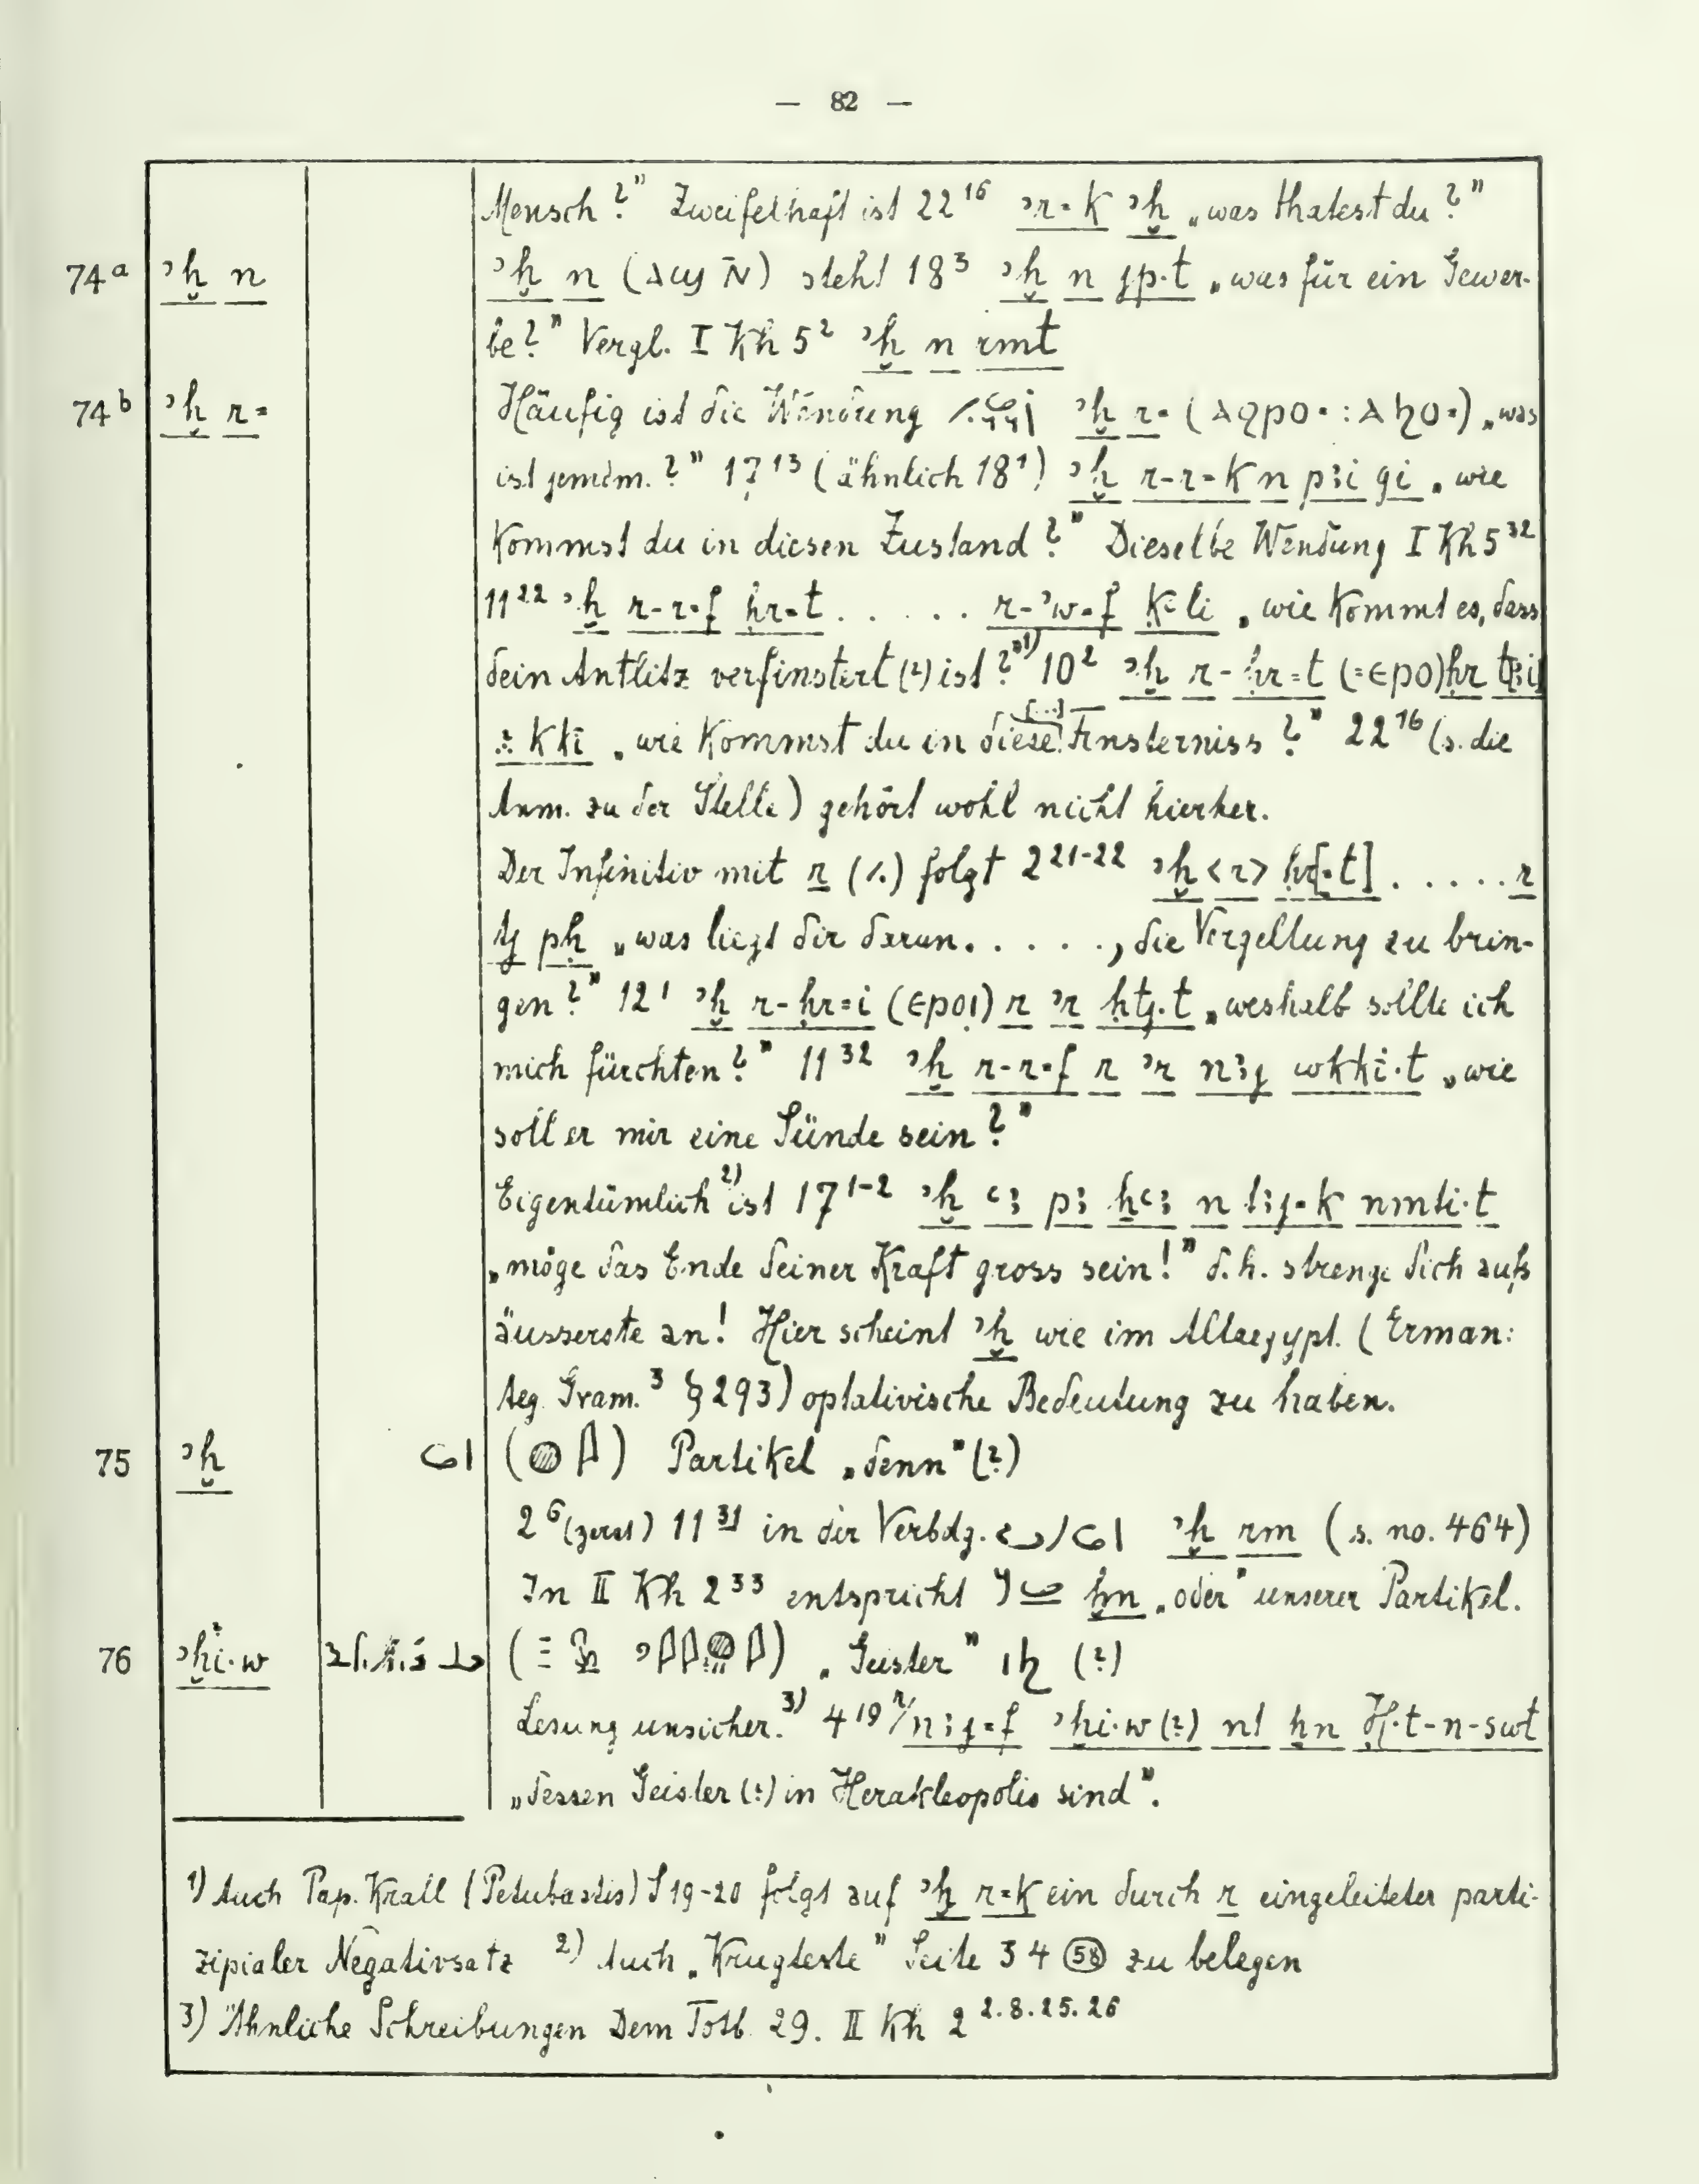 — 82 —
Mensch?" Zweifelhaft ist 22¹⁶ ꜣr=k ꜣḫ „was thatest du?"
74ᵃ ꜣḫ n ꜣḫ n (ⲁϣ ⲛ̄) steht 18³ ꜣḫ n jp·t „was für ein Gewer-
be?" Vergl. I Kh 5² ꜣḫ n rmt
74ᵇ ꜣḫ r= Häufig ist die Wendung ꜣḫ r= (ⲁϩⲣⲟ= : ⲁϧⲟ=) „was
ist jemdm.?" 17¹³ (ähnlich 18¹) ꜣḫ r-r=k n pꜣi gi „wie
kommst du in diesen Zustand?" Dieselbe Wendung I Kh 5³²
11²² ꜣḫ r-r=f ḥr=t ..... r-ꜣw=f „wie kommt es, dass
dein Antlitz verfinstert (?) ist?"¹⁾ 10² ꜣḫ r-ḥr=t (=ⲉⲣⲟ) ḥr
kkī „wie kommst du in diese Finsterniss?" 22¹⁶ (s. die
Anm. zu der Stelle) gehört wohl nicht hierher.
Der Infinitiv mit r (/.) folgt 2²¹⁻²² ꜣḫ <r> ḥr[=t] ..... r
pḥ „was liegt dir daran....., die Vergeltung zu brin-
gen?" 12¹ ꜣḫ r-ḥr=i (ⲉⲣⲟⲓ) r ꜣr ḥtj·t „weshalb sollte ich
mich fürchten?" 11³² ꜣḫ r-r=f r ꜣr nꜣj wkkī·t „wie
soll er mir eine Sünde sein?"
Eigentümlich²⁾ ist 17¹⁻² ꜣḫ ꜥꜣ pꜣ ḥꜥꜣ n tꜣj=k nmti·t
„möge das Ende deiner Kraft gross sein!" d.h. strenge dich aufs
äusserste an! Hier scheint ꜣḫ wie im Altaegypt. (Erman:
Aeg. Gram.³ §293) optativische Bedeutung zu haben.
75 ꜣḫ Partikel „denn" (?)
2⁶ (zerst) 11³¹ in der Verbdg. ꜣḫ rm (s. no. 464)
In II Kh 2³³ entspricht ḥn „oder" unserer Partikel.
76 ꜣḫi·w „Geister" ⲓϧ (?)
Lesung unsicher.³⁾ 4¹⁹ nꜣj=f ꜣḫi·w (?) nt ḥn Ḥ·t-n-swt
„dessen Geister (?) in Herakleopolis sind".
1) Auch Pap. Krall (Petubastis) S 19-20 folgt auf ꜣḫ r=k ein durch r eingeleiteter parti-
zipialer Negativsatz 2) Auch „Krugtexte" Seite 34 (58) zu belegen
3) Ähnliche Schreibungen Dem Totb. 29. II Kh 2 ²·⁸·²⁵·²⁶